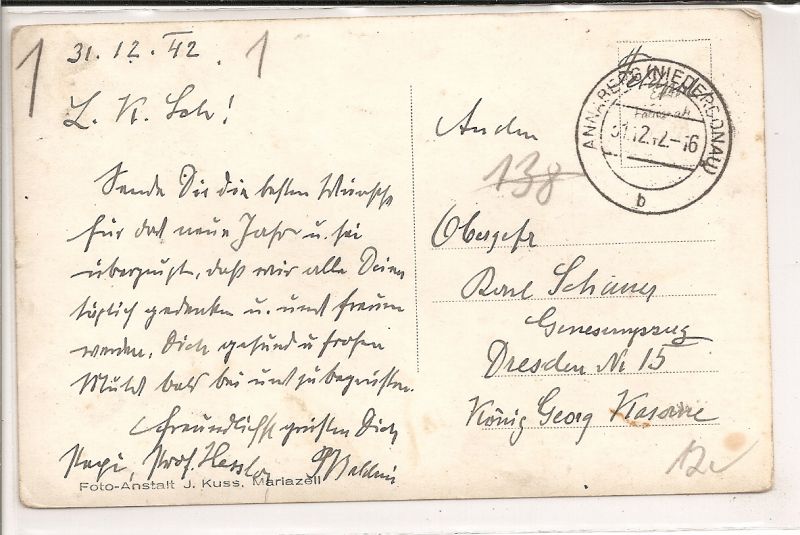 1
31.12.42.
1
L. K. Sch!
Sende Dir die besten Wünsche
für das neue Jahr u. sei
überzeugt, daß wir alle Deiner
täglich gedenken u. uns freuen
werden, Dich gesund u frohen
Muts bald bei uns zu begrüßen.
Freundlichst grüßen Dich
Prof.
Foto-Anstalt J. Kuss, Mariazell
ANNABERG (NIEDERDONAU)
31.12.42.-16
b
An den
138
Obergefr
Karl
Genesungszug
Dresden Nr 15
König Georg Kaserne
12